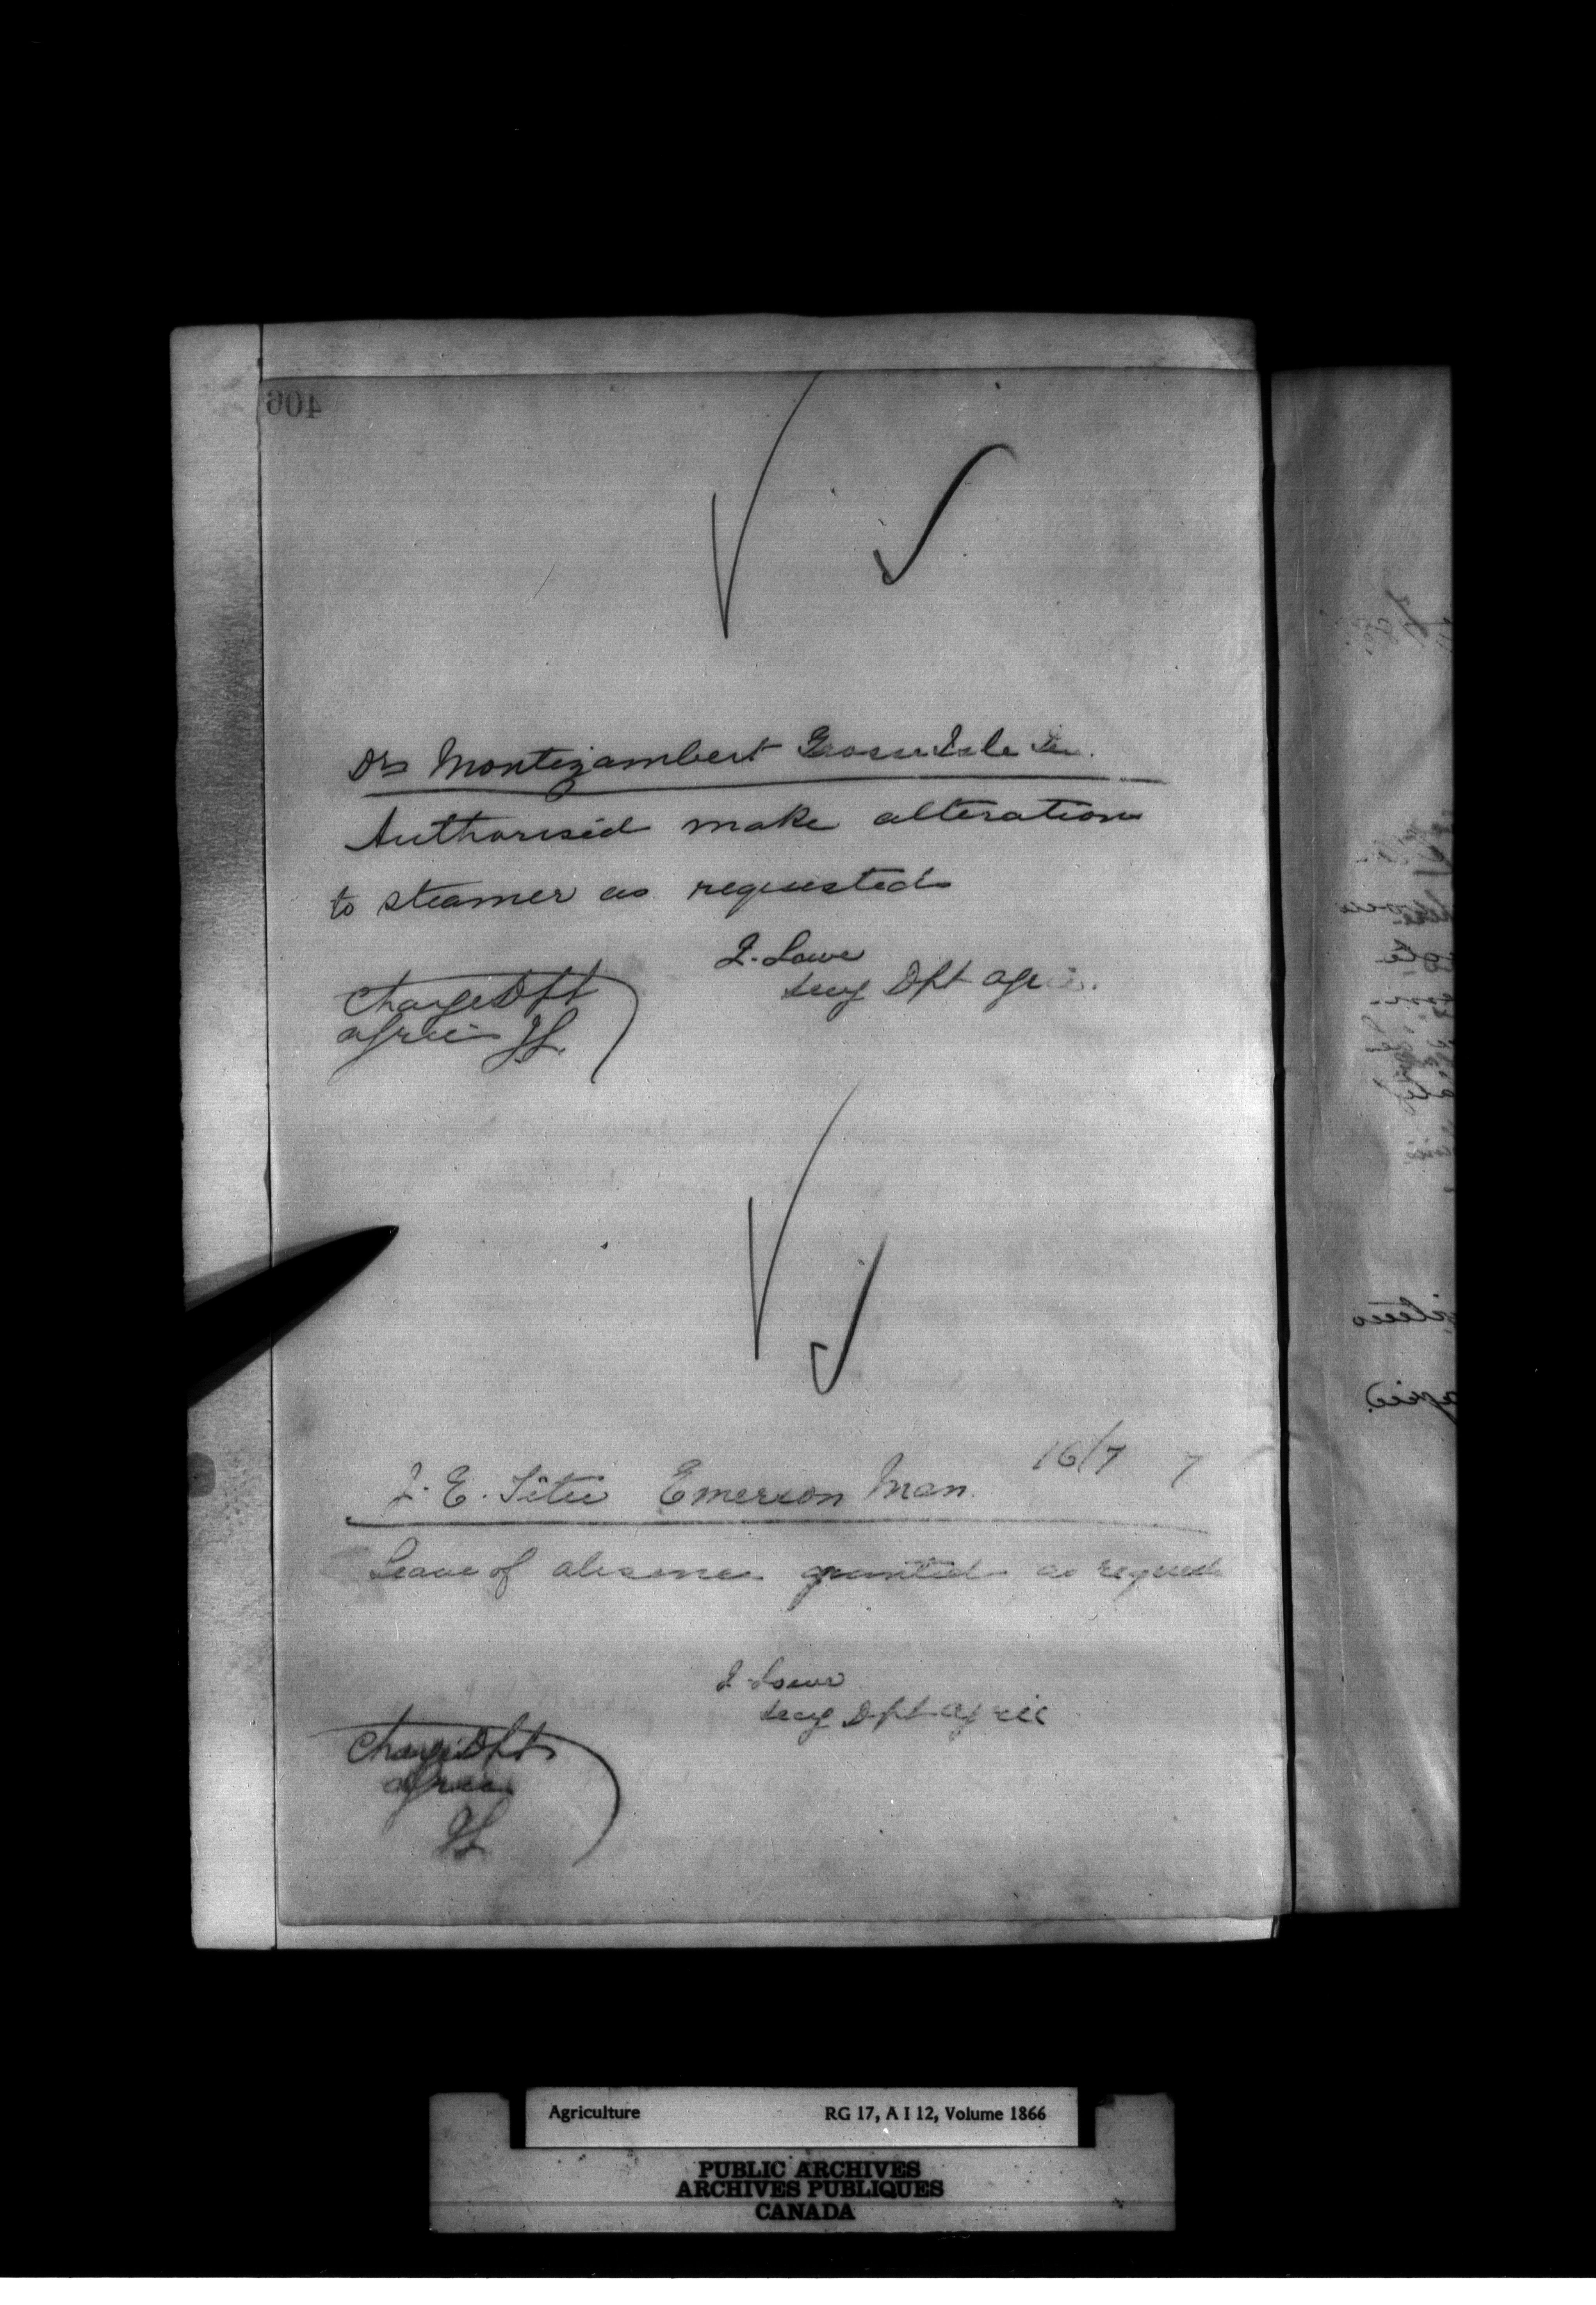 406
Dr Montizambert Grosse Isle
Authorised make alterations
to steamer as requested
J. Lowe
Secy Dpt Agric.
Charge Dpt
Agric JL.
16/7 7
J. E. Têtu Emerson Man.
Leave of absence granted as request
J. Lowe
Secy Dpt Agric
Charge Dpt
Agric
JL
Agriculture RG 17, A I 12, Volume 1866
PUBLIC ARCHIVES
ARCHIVES PUBLIQUES
CANADA